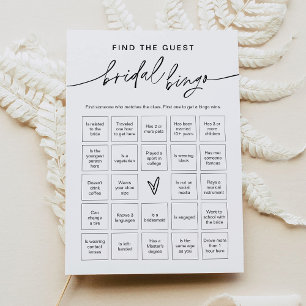 FIND THE GUEST
bridal bingo
Find someone who matches the clues. First one to get a bingo wins.
Is related to
the bride
Traveled
one hour
to get here
Has 2 or
more pets
Has been
married
10+ years
Has 3 or
more
children
Is the
youngest
person
here
Is a
vegetarian
Played a
sport in
college
Is wearing
blue
Has met
someone
famous
Doesn't
drink
coffee
Wears
your shoe
size
Is not on
social
media
Plays a
musical
instrument
Can
change a
tire
Speaks 2
languages
Is a
bridesmaid
Is engaged
Went to
school with
the bride
Is wearing
contact
lenses
Is left-
handed
Has a
Master's
degree
Is the
same age
as you
Drove more
than 1
hour here